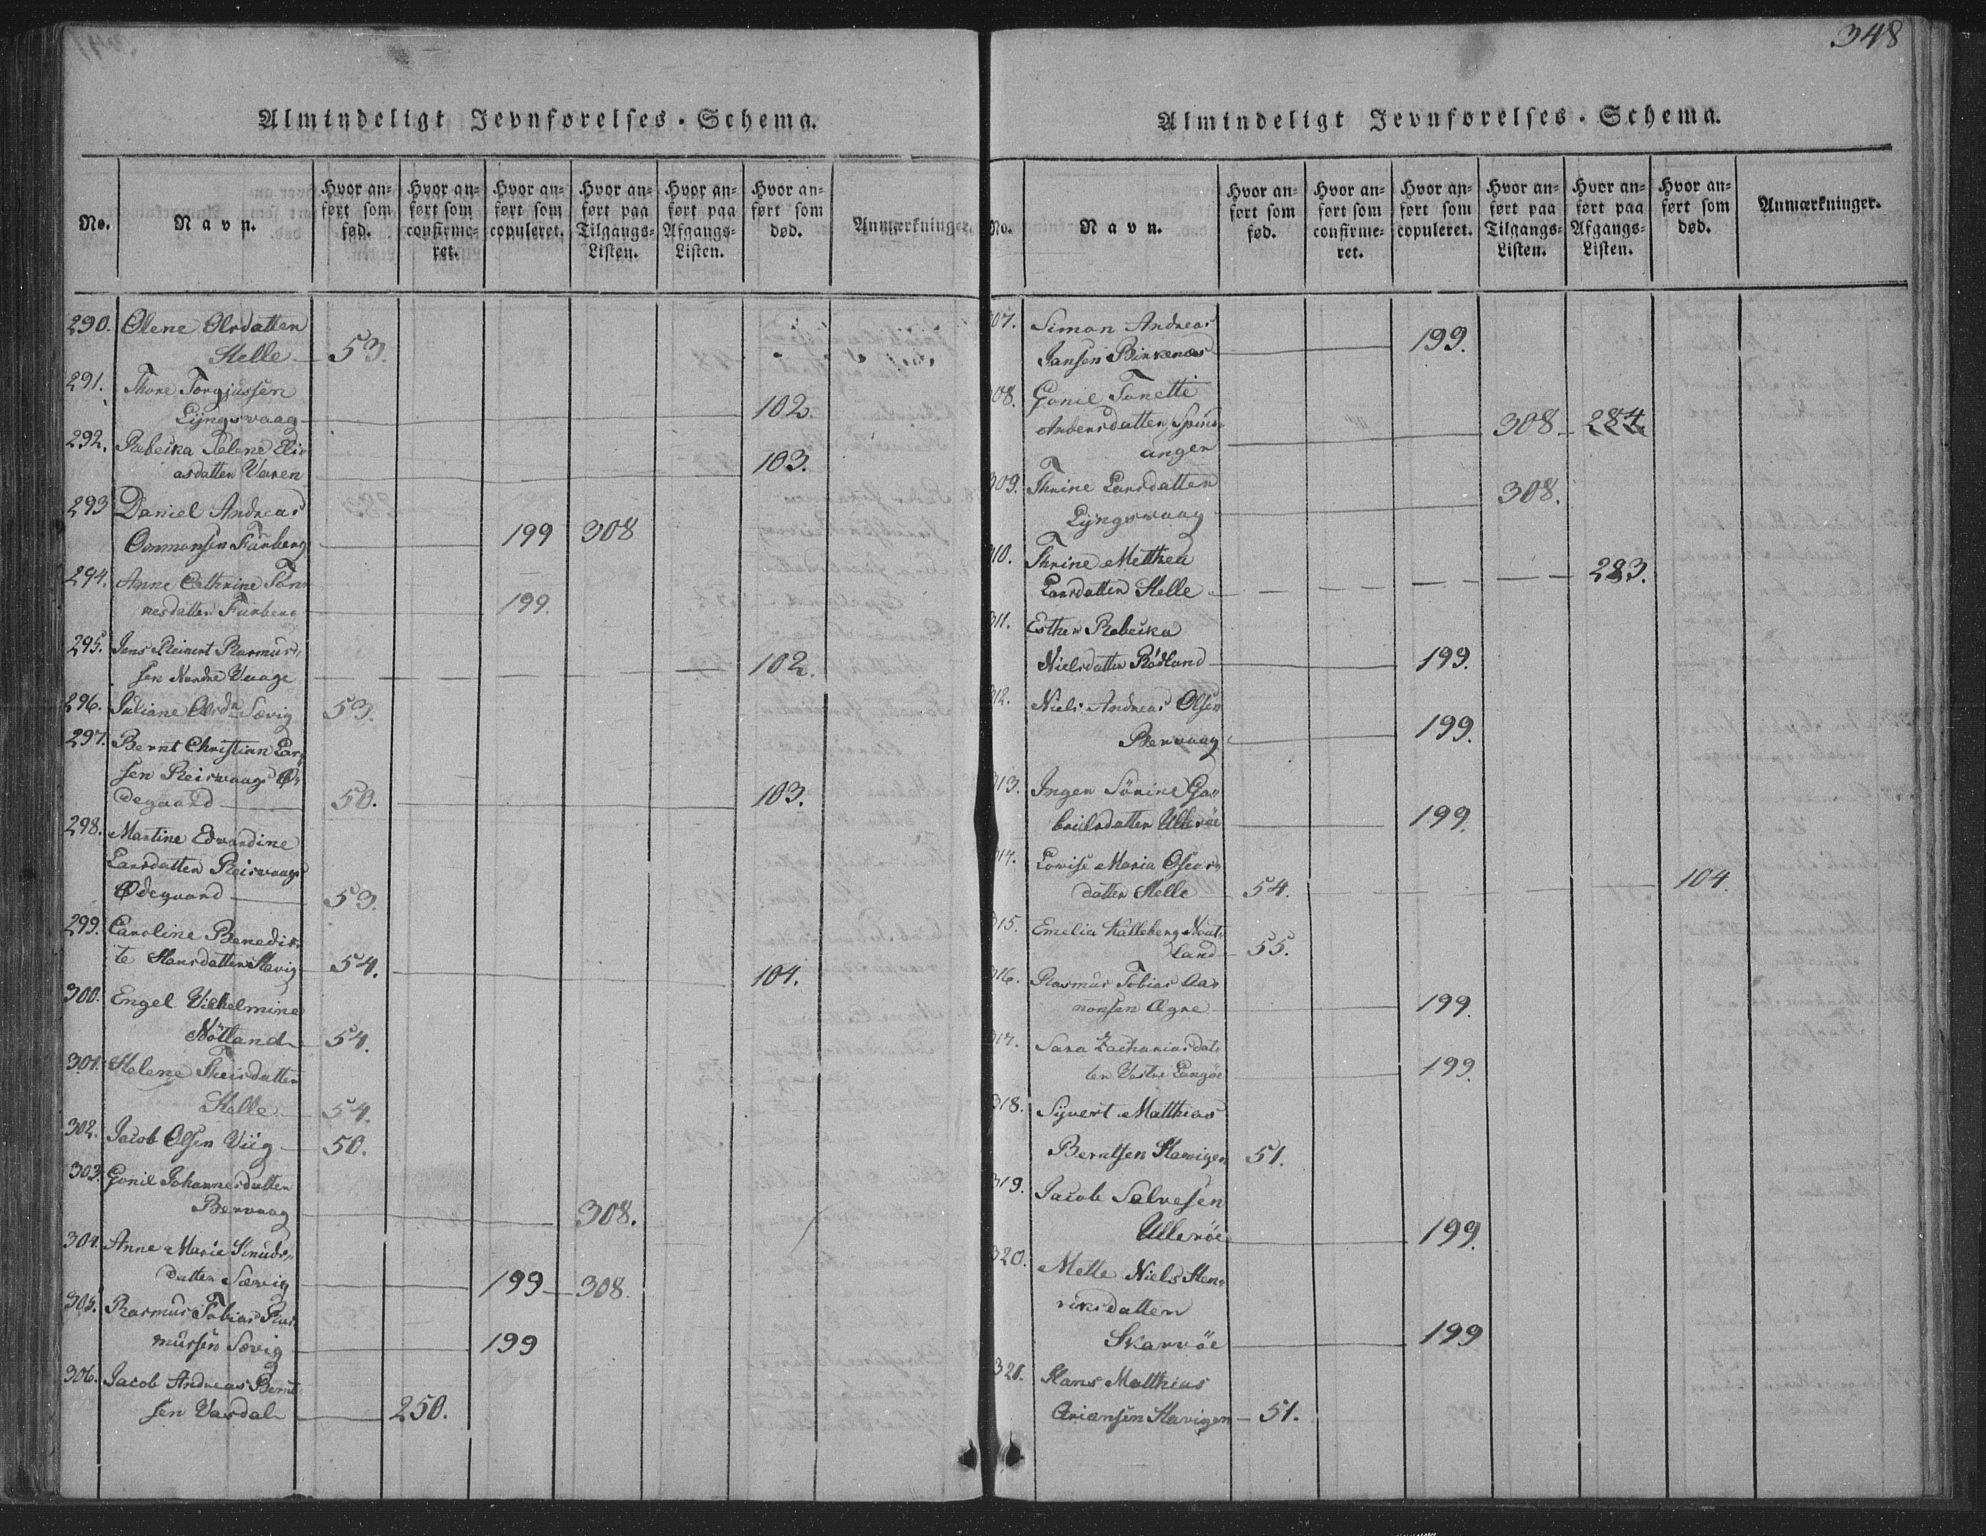 348
Almindeligt Jevnførelses-Schema.
No.
Navn.
Hvor anført som fød.
Hvor anført som confirmeret.
Hvor anført som copuleret.
Hvor anført paa Tilgangs-Listen.
Hvor anført paa Afgangs-Listen.
Hvor anført som død.
Anmærkninger.
290. Olene Olsdatten
Helle 53.
291. Thore Torgjussen
Lyngsvaag 102.
292. Rebecka Helene Eli-
asdatten Varen 103.
293 Daniel Andreas
Ommonsen Furberg 199 308
294. Anne Cathrine Tøn-
nesdatten Furberg 199.
295. Jens Reinert Rasmus-
sen Nordre Vaage 102.
296. Juliane Olsdn Sævig 53.
297. Bernt Christian Lar-
sen Reisvaags Ø-
degaard 50. 103.
298. Martine Edvardine
Larsdatten Reisvaags
Ødegaard 53.
299. Caroline Benedik-
te Hansdatten Havig 54. 104.
300. Engel Vilhelmine
Nötland 54.
301. Helene Theisdatten
Helle 54.
302. Jacob Olsen Viig 50.
303. Gonil Johannesdatten
Bervaag 308.
304. Anne Marie Knuds-
datten Sævig 199 308.
305. Rasmus Tobias Ras-
mussen Sævig 199
306. Jacob Andreas Bernt-
sen Vardal 250.
Almindeligt Jevnførelses-Schema.
No.
Navn.
Hvor anført som fød.
Hvor anført som confirmeret.
Hvor anført som copuleret.
Hvor anført paa Tilgangs-Listen.
Hvor anført paa Afgangs-Listen.
Hvor anført som død.
Anmærkninger.
307. Simon Andreas
Jansen Birkenæs 199.
308. Gonil Tonette
Anbensdatten Spins-
anger 308 284
309. Thrine Larsdatten
Lyngsvaag 308.
310. Thrine Metthea
Larsdatten Helle 283.
311. Esther Rebecka
Nielsdatter Rödland 199.
312. Niels Andreas Olsen
Bervaag 199.
313. Inger Sörine Ga-
brielsdatten Ulleröe 199.
314. Lovise Maria Osear-
datter Helle 54. 104.
315. Emelia Kalleberg Nöt-
land 55.
316. Rasmus Tobias Aa-
nonsen Ægre 199.
317. Sara Zachariasdat-
ter Vestre Langøe 199.
318. Syvert Matthias
Berntsen Havigen 51.
319. Jacob Salvesen
Ulleröe 199.
320. Mette Niels Hen-
riksdatten
Skarvöe 199
321. Hans Matthias
Ariansen Havigen 51.